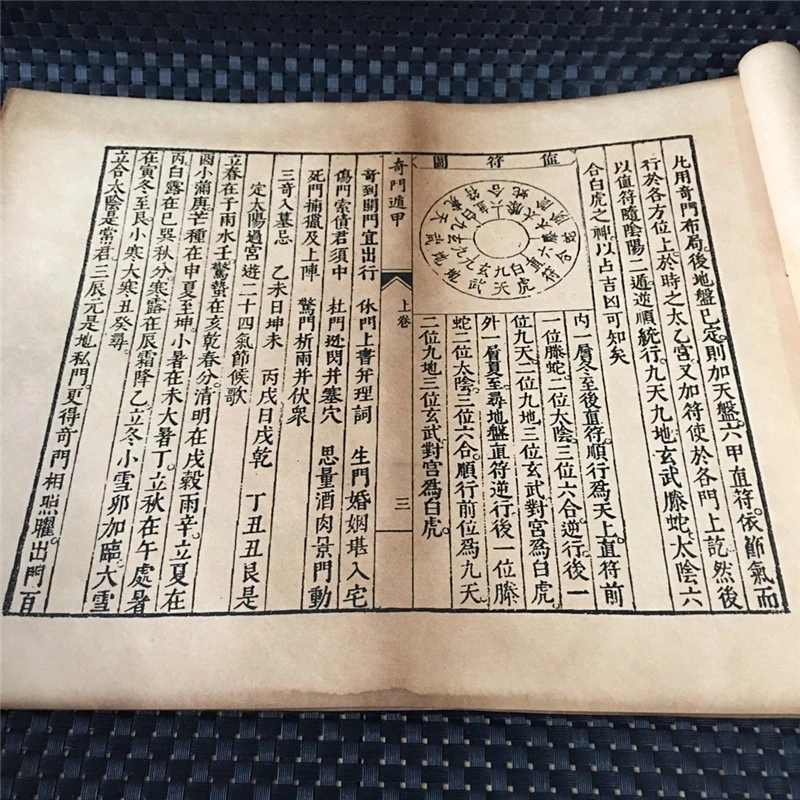 凡用奇門布局。後地盤已定。則加天盤。六甲直符。依節氣而
行於各方位上。於時之太乙宮。又加符使於各門上訖。然後
以值符隨陰陽二遁逆順統行。九天九地玄武螣蛇。太陰六
合白虎之神以占吉凶可知矣
值符圖
內一層冬至後直符。順行為天上直符前
一位螣蛇。二位太陰。三位六合。逆行後一
位九天。二位九地。三位玄武。對宮為白虎。
外一層夏至尋地盤直符逆行後一位螣
蛇。二位太陰。三位六合。順行前位為九天
二位九地三位玄武。對宮為白虎。
奇門遁甲
上卷
三
奇到開門宜出行 休門上書并理詞 生門婚姻堪入宅
傷門索債君須中 杜門逃閃并塞穴 思量酒肉景門動
死門捕獵及上陣 驚門析雨并伏眾
三奇入墓忌 乙未日坤未 丙戌日戌乾 丁丑丑艮是
定太陽過宮遊二十四氣節候歌
立春在子雨水壬驚蟄在亥乾春分。清明在戌穀雨辛。立夏在
酉小滿庚。芒種在申夏至坤。小暑在未大暑丁。立秋在午處暑
丙。白露在巳巽秋分。寒露在辰霜降乙。立冬小雪卯加臨。大雪
在寅冬至艮。小寒大寒丑癸尋。
立合太陰是常君。三辰元是地私門。更得奇門相照耀出門百